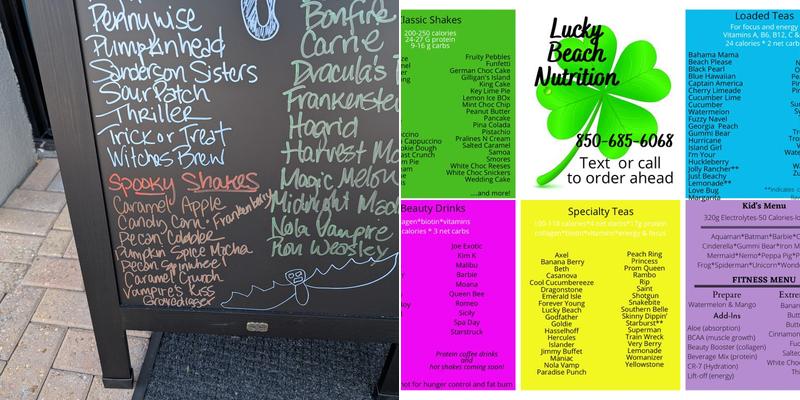 Pennywise
Pumpkinhead
Sanderson Sisters
Sour Patch
Thriller
Trick or Treat
Witches Brew
Spooky Shakes
Caramel Apple
Candy Corn
Frankenberry
Pumpkin Spice Mocha
Caramel Crunch
Vampire's Kiss
Gravedigger
Bonfire
Carrie
Dracula's
Hagrid
Harvest
Magic
Midnight
Nola Vampire
Ron Weasley
Classic Shakes
200-250 calories
24-27 G protein
9-16 g carbs
Fruity Pebbles
Funfetti
German Choc Cake
Gilligan's Island
King Cake
Key Lime Pie
Lemon Ice BOx
Mint Choc Chip
Peanut Butter
Pancake
Pina Colada
Pistachio
Pralines N Cream
Salted Caramel
Samoa
Smores
White Choc Reeses
White Choc Snickers
Wedding Cake
...and more!
Lucky
Beach
Nutrition
850-685-6068
Text or call
to order ahead
Loaded Teas
For focus and energy
Vitamins A, B6, B12, C &
24 calories * 2 net carb
Bahama Mama
Beach Please
Black Pearl
Blue Hawaiian
Captain America
Cherry Limeade
Cucumber Lime
Cucumber
Watermelon
Fuzzy Navel
Georgia Peach
Gummi Bear
Hurricane
Island Girl
I'm Your
Huckleberry
Jolly Rancher**
Just Beachy
Lemonade**
Love Bug
Margarita
**indicates
Beauty Drinks
agen*biotin*vitamins
calories * 3 net carbs
Joe Exotic
Kim K
Malibu
Barbie
Moana
Queen Bee
Romeo
Sicily
Spa Day
Starstruck
Protein coffee drinks
and
hot shakes coming soon!
hot for hunger control and fat burn
Specialty Teas
collagen*biotin*vitamins*energy & focus
Axel
Banana Berry
Beth
Casanova
Cool Cucumbereeze
Dragonstone
Emerald Isle
Forever Young
Lucky Beach
Godfather
Goldie
Hasselhoff
Hercules
Islander
Jimmy Buffet
Maniac
Nola Vamp
Paradise Punch
Peach Ring
Princess
Prom Queen
Rambo
Rip
Saint
Shotgun
Snakebite
Southern Belle
Skinny Dippin'
Starburst**
Superman
Train Wreck
Very Berry
Lemonade
Womanizer
Yellowstone
Kid's Menu
320g Electrolytes-50 Calories-lo
Aquaman*Batman*Barbie*C
Cinderella*Gummi Bear*Iron M
Mermaid*Nemo*Peppa Pig*P
Frog*Spiderman*Unicorn*Wond
FITNESS MENU
Prepare
Watermelon & Mango
Add-Ins
Aloe (absorption)
BCAA (muscle growth)
Beauty Booster (collagen)
Beverage Mix (protein)
CR-7 (Hydration)
Lift-off (energy)